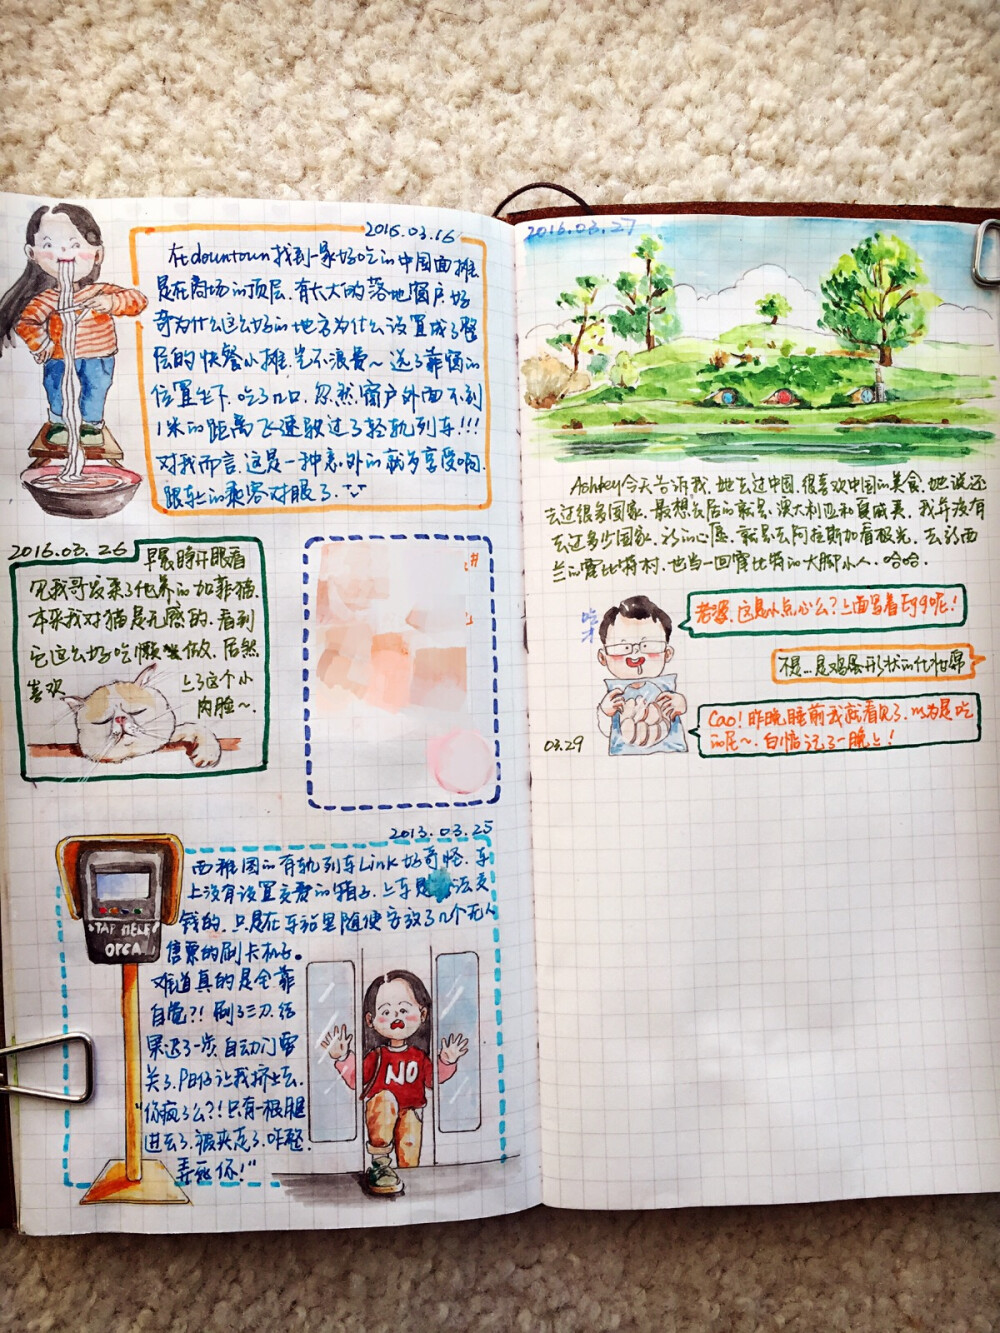 2016.03.16
在downtown找到一家好吃的中国面摊
是在商场的顶层.有大大的落地窗户.好
奇为什么这么好的地方为什么设置成了整
层的快餐小摊.岂不浪费~选了靠窗的
位置坐下.吃了几口.忽然窗户外面不到
1米的距离飞速驶过了轻轨列车!!!
对我而言.这是一种意外的就餐享受啊.
跟车上的乘客对眼了.
2016.03.26
早晨睁开眼看
见我哥发来了他养的加菲猫.
本来我对猫是无感的.看到
它这么好吃懒做.居然
喜欢 上了这个小
肉脸~.
2013.03.25
西雅图的有轨列车Link好奇怪.车
上没有设置交费的箱子.上车是 法交
钱的.只是在车站里随便安放了几个无人
售票的刷卡机子。
难道真的是全靠
自觉?!刷了三次.结
果迟了一步.自动门要
关了.阳仔让我挤上去.
"你疯了么?!只有一根腿
进去了.被夹走了.咋整.
弄死你!"
TAP HERE
ORCA
NO
2016.03.27
Ashley今天告诉我.她去过中国.很喜欢中国的美食.她说还
去过很多国家.最想去居的就是澳大利亚和夏威夷.我并没有
去过多少国家.我的心愿.就是去阿拉斯加看极光.去新西
兰的霍比特村.也当一回霍比特的大脚小人.哈哈.
老婆.这是小点心么?上面写着Egg呢!
不是...是鸡蛋形状的化妆棉
03.29
Cao!昨晚睡前我就看见了.以为是吃
的呢~.白惦记了一晚上!